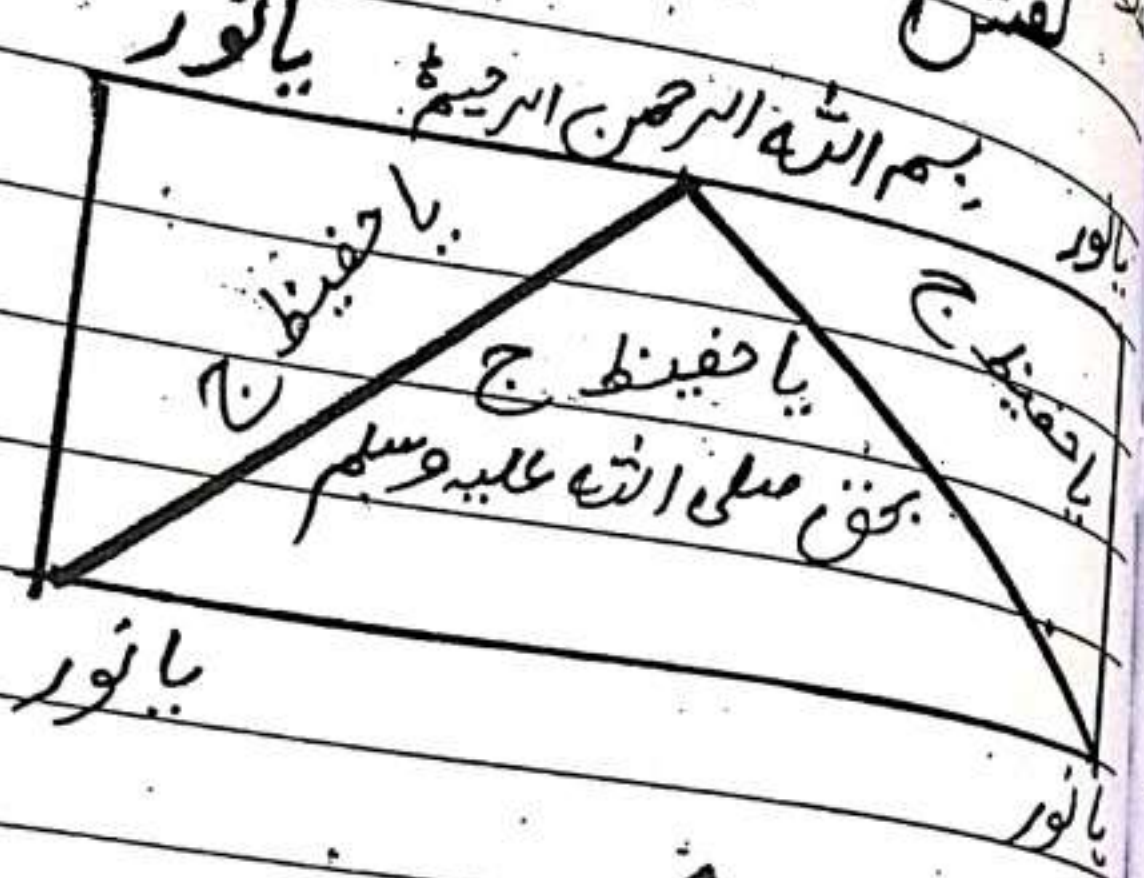 نقش
یانور
بسم اللہ الرحمن الرحیم
یانور
یا حفیظ ج
یا حفیظ ج
یا حفیظ ج
بحق صلی اللہ علیہ وسلم
یانور
یانور